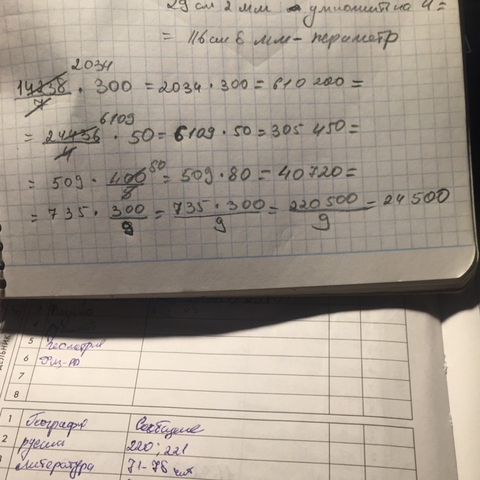 29 см 2 мм умножить на 4 =
= 116 см 8 мм - периметр
2034
14238/7 · 300 = 2034 · 300 = 610 200 =
6109
= 24436/4 · 50 = 6109 · 50 = 305 450 =
50
= 509 · 400/8 = 509 · 80 = 40720 =
= 735 · 300/9 = 735 · 300/9 = 220 500/9 = 24 500
5 геометрия
6
7
8
1 География Сообщение
2 русский 220; 221
литература 71-78 чит